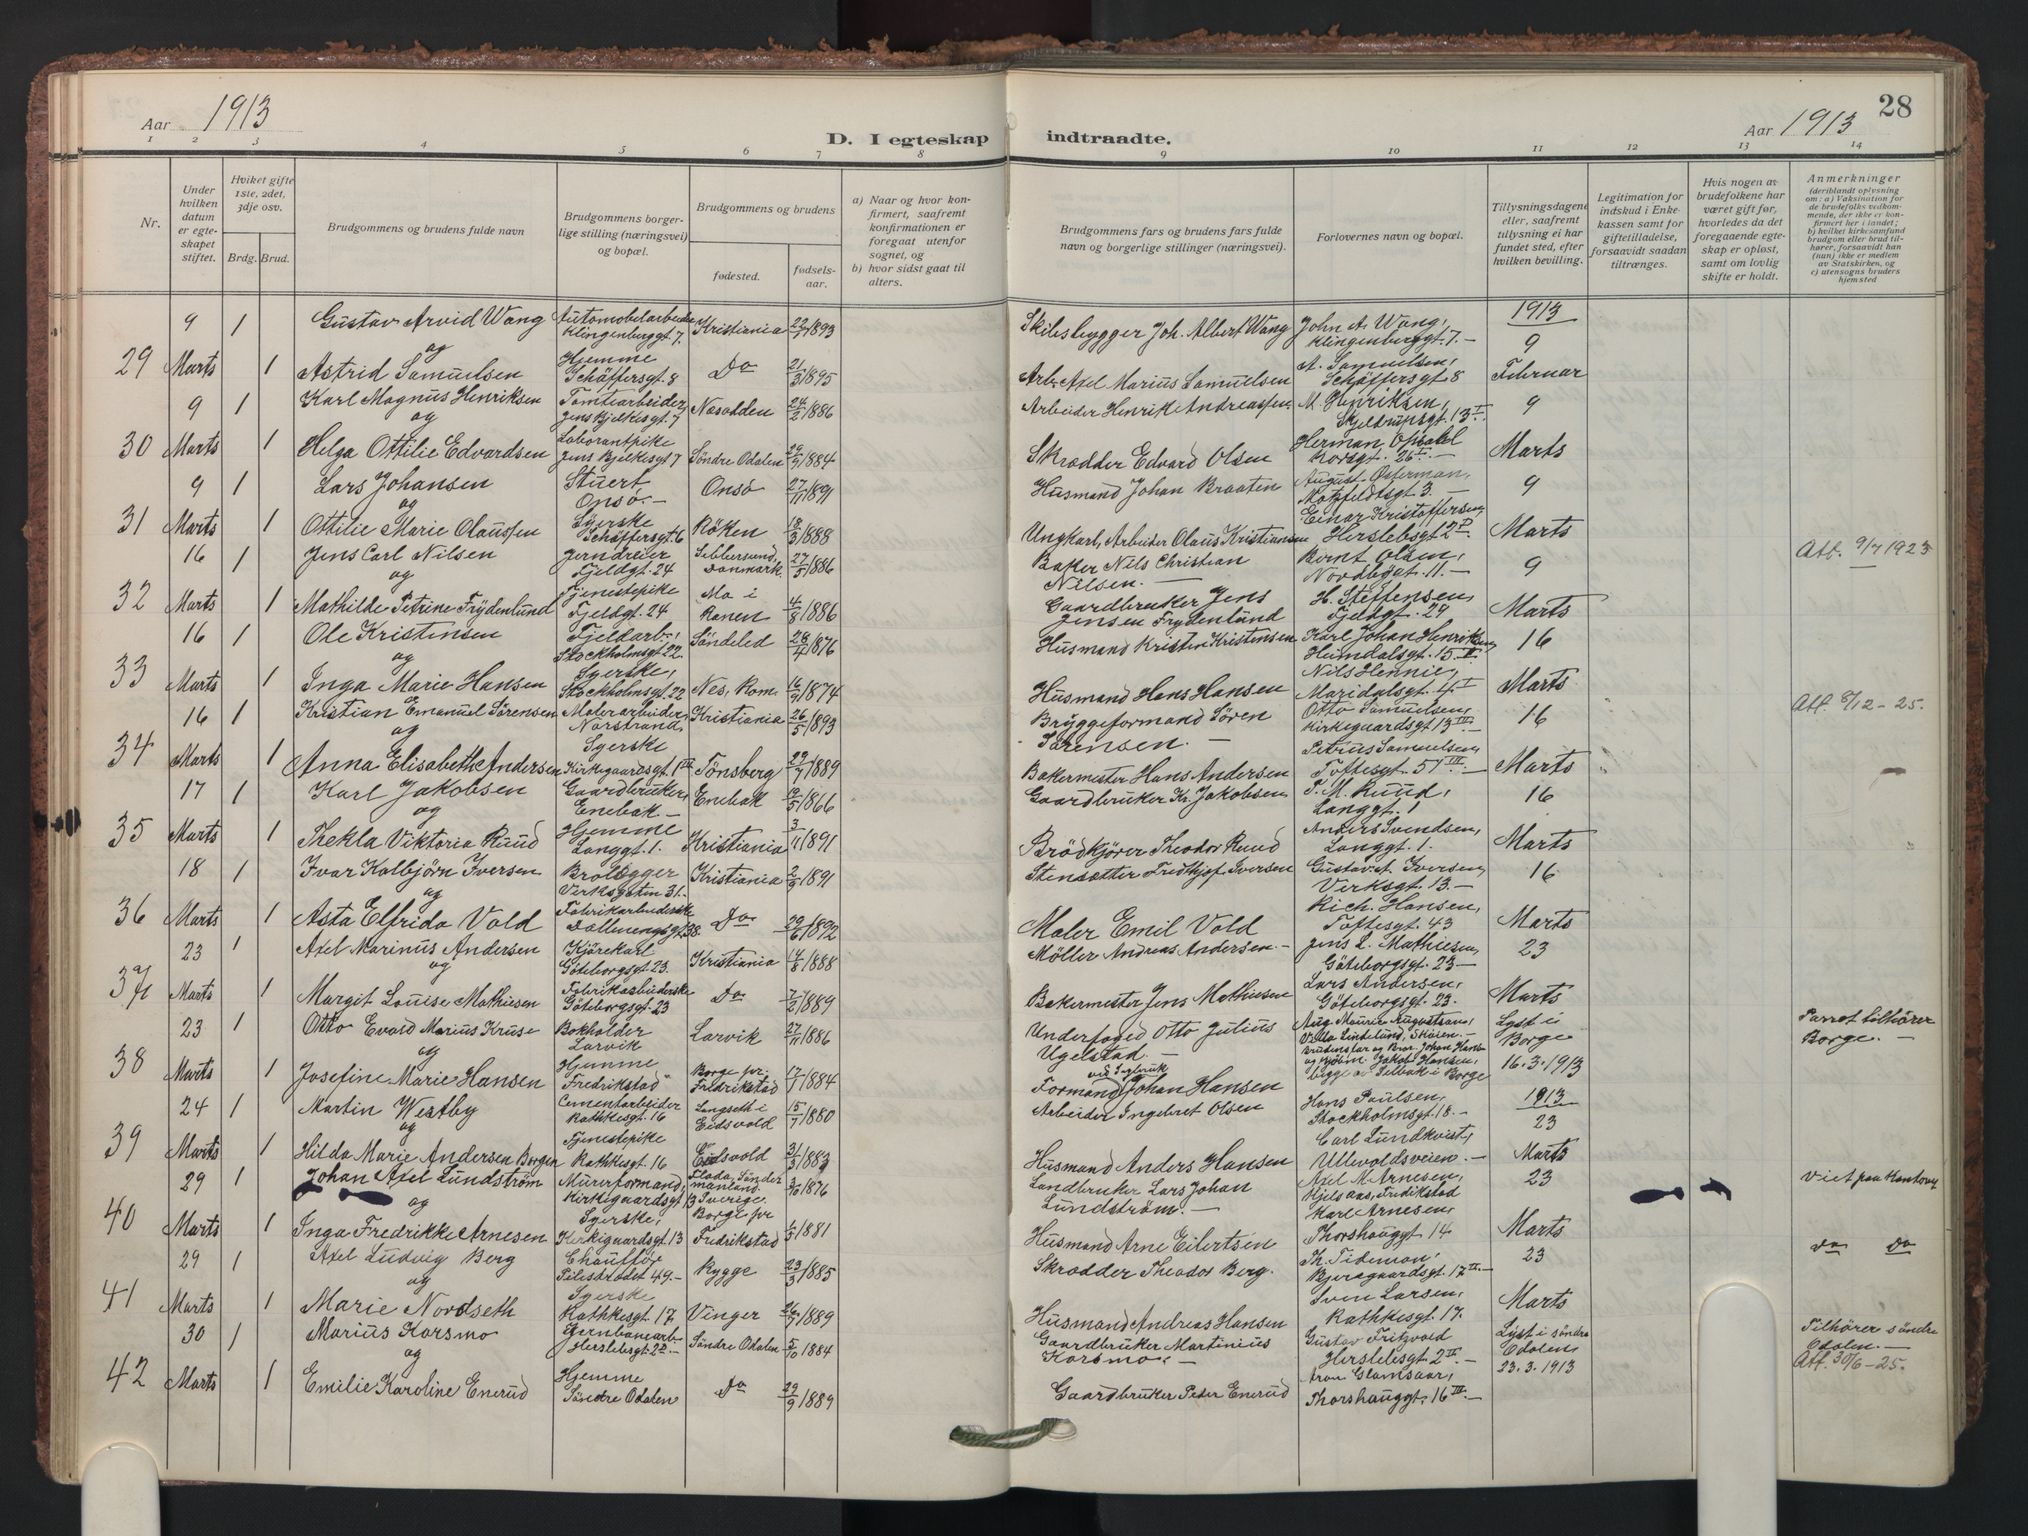 28
Aar 1913
Aar 1913
D. I egteskap indtraadte.
1 2 3 4 5 6 7 8 9 10 11 12 13 14
Nr.
Under hvilken datum er egteskapet stiftet.
Hviket gifte 1ste, 2det, 3dje osv.
Brdg. Brud.
Brudgommens og brudens fulde navn
Brudgommens borgerlige stilling (næringsvei) og bopæl.
Brudgommens og brudens
fødested.
fødselsaar.
a) Naar og hvor konfirmert, saafremt konfirmationen er foregaat utenfor sognet, og
b) hvor sidst gaat til alters.
Brudgommens fars og brudens fars fulde navn og borgerlige stillinger (næringsvei).
Forlovernes navn og bopæl.
Tillysningsdagene eller, saafremt tillysning ei har fundet sted, efter hvilken bevilling.
Legitimation for indskud i Enkekassen samt for giftetilladelse, forsaavidt saadan tiltrænges.
Hvis nogen av brudefolkene har været gift før, hvorledes da det foregaaende egteskap er opløst, samt om lovlig skifte er holdt.
Anmerkninger
(deriblandt oplysning om: a) Vaksination for de brudefolks vedkommende, der ikke er konfirmert her i landet; b) hvilket kirkesamfund brudgom eller brud tilhører, forsaavidt han (hun) ikke er medlem av Statskirken, og c) utensogns bruders hjemsted
29 9 Marts 1 Gustav Arvid Wang Automobilarbeider Klingenberggt. 7. Kristiania 22/7 1893 Skibsbygger Joh. Albert Wang John A. Wang, Klingenberggt. 7.- 1913 9
og
1 Astrid Samuelsen Hjemme Schäffersgt. 8 Do 21/3 1895 Arb. Axel Marius Samuelsen A. Samuelsen, Schäffersgt 8 Februar
30 9 Marts 1 Karl Magnus Henriksen Tomtearbeider Jens Bjelkesgt. 7 Næsodden 24/2 1886 Arbeider Henrik Andreassen M. Henriksen, Skjeldrupsgt. 13 I. 9
og
1 Helga Ottilie Edvardsen Laborantpike Jens Bjelkesgt 7 Söndre Odalen 1884 Skrædder Edvard Olsen Herman Opsahl Korsgt. 26 II.- Marts
31 9 Marts 1 Lars Johansen Stuert Onsö- Onsö 27/11 1891 Husmand Johan Braaten August Østerman, Motzfeldtsgt 3.- 9
og
1 Ottilie Marie Olaussen Syerske Schäffersgt. 6 Röken 18/3 1888 Ungkarl, Arbeider Olaus Kristiansen Einar Kristoffersen, Herslebsgt 2 D. Marts
32 16 Marts 1 Jens Carl Nilsen Jerndreier Fjeldgt. 24 Sebbersund, Danmark. 27/5 1886 Baker Nils Christian Nilsen.- Bernt Olsen, Nordbygt. 11.- 9 Att. 9/7 1923
og
1 Mathilde Petrine Frydenlund Tjenestepike Fjeldgt. 24 Mo i Ranen 4/8 1886 Gaardbruker Jens Jensen Frydenlund H. Steffensen, Fjeldgt. 24 Marts
33 16 Marts 1 Ole Kristensen Fjeldarb., Stockholmsgt. 22. Söndeled 28/7 1876 Husmand Kristen Kristensen Karl Johan Henriksen, Heimdalsgt. 15 II. 16
og
1 Inga Marie Hansen Syerske, Stockholmsgt. 22 Nes, Rom. 16/9 1874 Husmand Hans Hansen Nils Hennie, Maridalsgt. 4 I Marts
34 16 Marts 1 Kristian Emanuel Sörensen Malerarbeider, Norstrand, Kristiania 26/5 1893 Bryggeformand Sören Sörensen.- Otto Samuelsen, Kirkegaardsgt 13 III- 16 Att. 8/12-25.
og
1 Anna Elisabeth Andersen Syerske Kirkegaardsgt. 1 Tönsberg 1889 Bakermester Hans Andersen Petrus Samuelsen, Toftesgt. 57 III.- Marts
35 17 Marts 1 Karl Jakobsen Gaardbruker, Enebak- Enebak 1866 Gaardbruker Kr. Jakobsen P. M. Ruud, Langgt. 1 16
og
1 Thekla Viktoria Ruud Hjemme Langgt. 1. Kristiania 3/11 1891 Brödkjörer Theodor Ruud Anders Svendsen, Langgt. 1. Marts
36 18 Marts 1 Ivar Kolbjörn Iversen Brolægger Verksgaten 31. Kristiania 2/9 1891 Stensætter Fredthjof Iversen Gustav A. Iversen, Verksgt. 13.- 16
og
1 Asta Elfrida Vold Fabrikarbeiderske Dælenengsgt 38. Do 29/6 1892 Maler Emil Vold Rich. Hansen, Toftesgt. 43 Marts
37 23 Marts 1 Axel Marinus Andersen Kjörekarl Göteborgsgt. 23. Kristiania 14/8 1888 Möller Andreas Andersen.- Jens L. Mathiesen, Göteborgsgt. 23- 23
og
1 Margit Louise Mathiesen Fabrikarbeiderske Göteborgsgt. 23 Do 7/2 1889 Bakermester Jens Mathiesen Lars Andersen, Göteborgsgt. 23. Marts
38 23 Marts 1 Otto Evald Marius Kruse Bokholder Larvik Larvik 27/11 1886 Underfoged Otto Julius Ugelstad- Lyst i Borge 16.3.1913 Parret tilhörer Borge.-
og
1 Josefine Marie Hansen Hjemme "Fredrikstad" Borge pr. Fredrikstad 17/1 1884 Formand ved Tegbruk Johan Hansen
39 24 Marts 1 Martin Westby Cementarbeider Rathkesgt. 16 Langseth i Eidsvold 15/7 1880 Arbeider Ingebret Olsen Hans Paulsen, Stockholmsgt. 18.- 1913 23
og
1 Hilda Marie Andersen Borgen Tjenestepike Rathkesgt. 16 Eidsvold 31/3 1883 Husmand Anders Hansen Carl Lundkvist, Ullevoldsveien.- Marts
40 29 Marts 1 Johan Axel Lundström Murerformand, Kirkegaardsgt 13 Sverige. 3/10 1876 Landbruker Lars Johan Lundström.- Axel M. Arnesen, Fredikstad 23 Viet paa Kontoret
og
1 Inga Fredrikke Arnesen Syerske, Kirkegaardsgt. 13 Borge pr Fredrikstad 1/5 1881 Husmand Arne Eilertsen Karl Arnesen, Thorshauggt. 14 Marts
41 29 Marts 1 Axel Ludvig Berg Chauffør Pilestrædet 49.- Rygge 23/3 1885 Skrædder Theodor Berg. Th. Tidemann, Bjeregaardsgt. 17 II.- 23 Do Do
og
1 Marie Nordseth Syerske Rathkesgt. 17. Vinger 26/7 1889 Husmand Andreas Hansen Sven Larsen, Rathkesgt. 17. Marts
42 30 Marts 1 Marius Korsmo Jernbanearb. Herslebsgt. 2 D.- Söndre Odalen 5/10 1884 Gaardbruker Martinius Korsmo.- Gustav Fritzvold Herslebsgt. 2 II.- Lyst i söndre Odalen, 23.3.1913 Tilhörer söndre Odalen.- Att. 30/6-25.
og
1 Emilie Karoline Enerud Hjemme Söndre Odalen Do 29/9 1889 Gaardbruker Peder Enerud Aron Glomsaar, Thorshauggt. 16 III.-